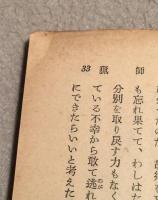 33 猟師
も忘れ果てて、わしはた
分別を取り戻す力もなく
ている不幸から敢て逃れ
にできたらいいと考えた